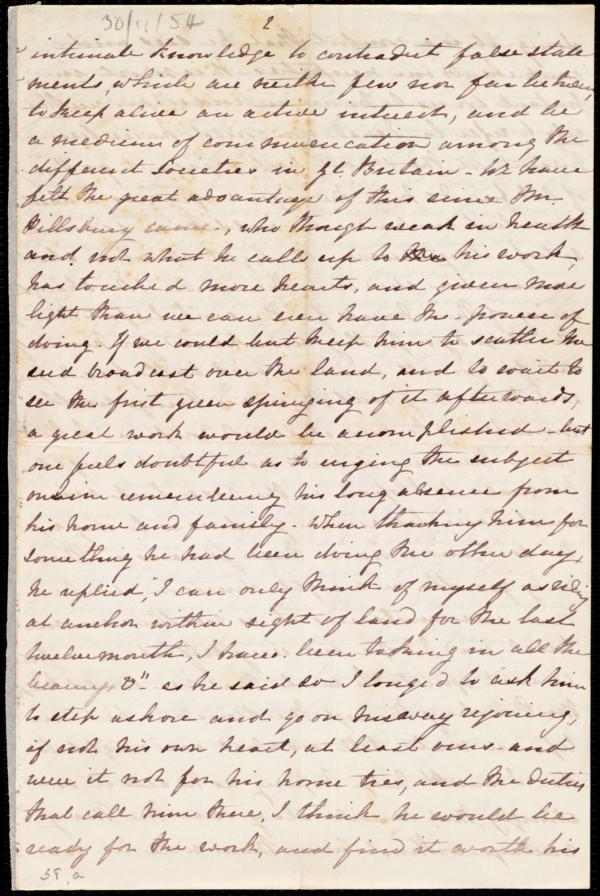 30/11/54
2
intimate knowledge to contradict false state
ments, which are neither few nor far between,
to keep alive an active interest, and be
a medium of communication among the
different Societies in Gt. Britain - We have
felt the great advantage of this since Mr.
Pillsbury came, who though weak in health
and not what he calls up to his work,
has touched more hearts, and given more
light than we can ever have the power of
doing. If we could but keep him to scatter the
seed broadcast over the land, and to wait to
see the first green springing of it afterwards,
a great work would be accomplished - but
one feels doubtful as to urging the subject
on him remembering his long absence from
his home and family. When thanking him for
something he had been doing the other day,
he replied, "I can only think of myself as riding
at anchor within sight of land for the last
twelve month, I have been taking in all the
as he said so I longed to ask him
to step ashore and go on his way rejoicing,
if not his own heart, at least ours - and
were it not for his home ties, and the duties
that call him there, I think he would be
ready for the work, and find it worth his
59. a